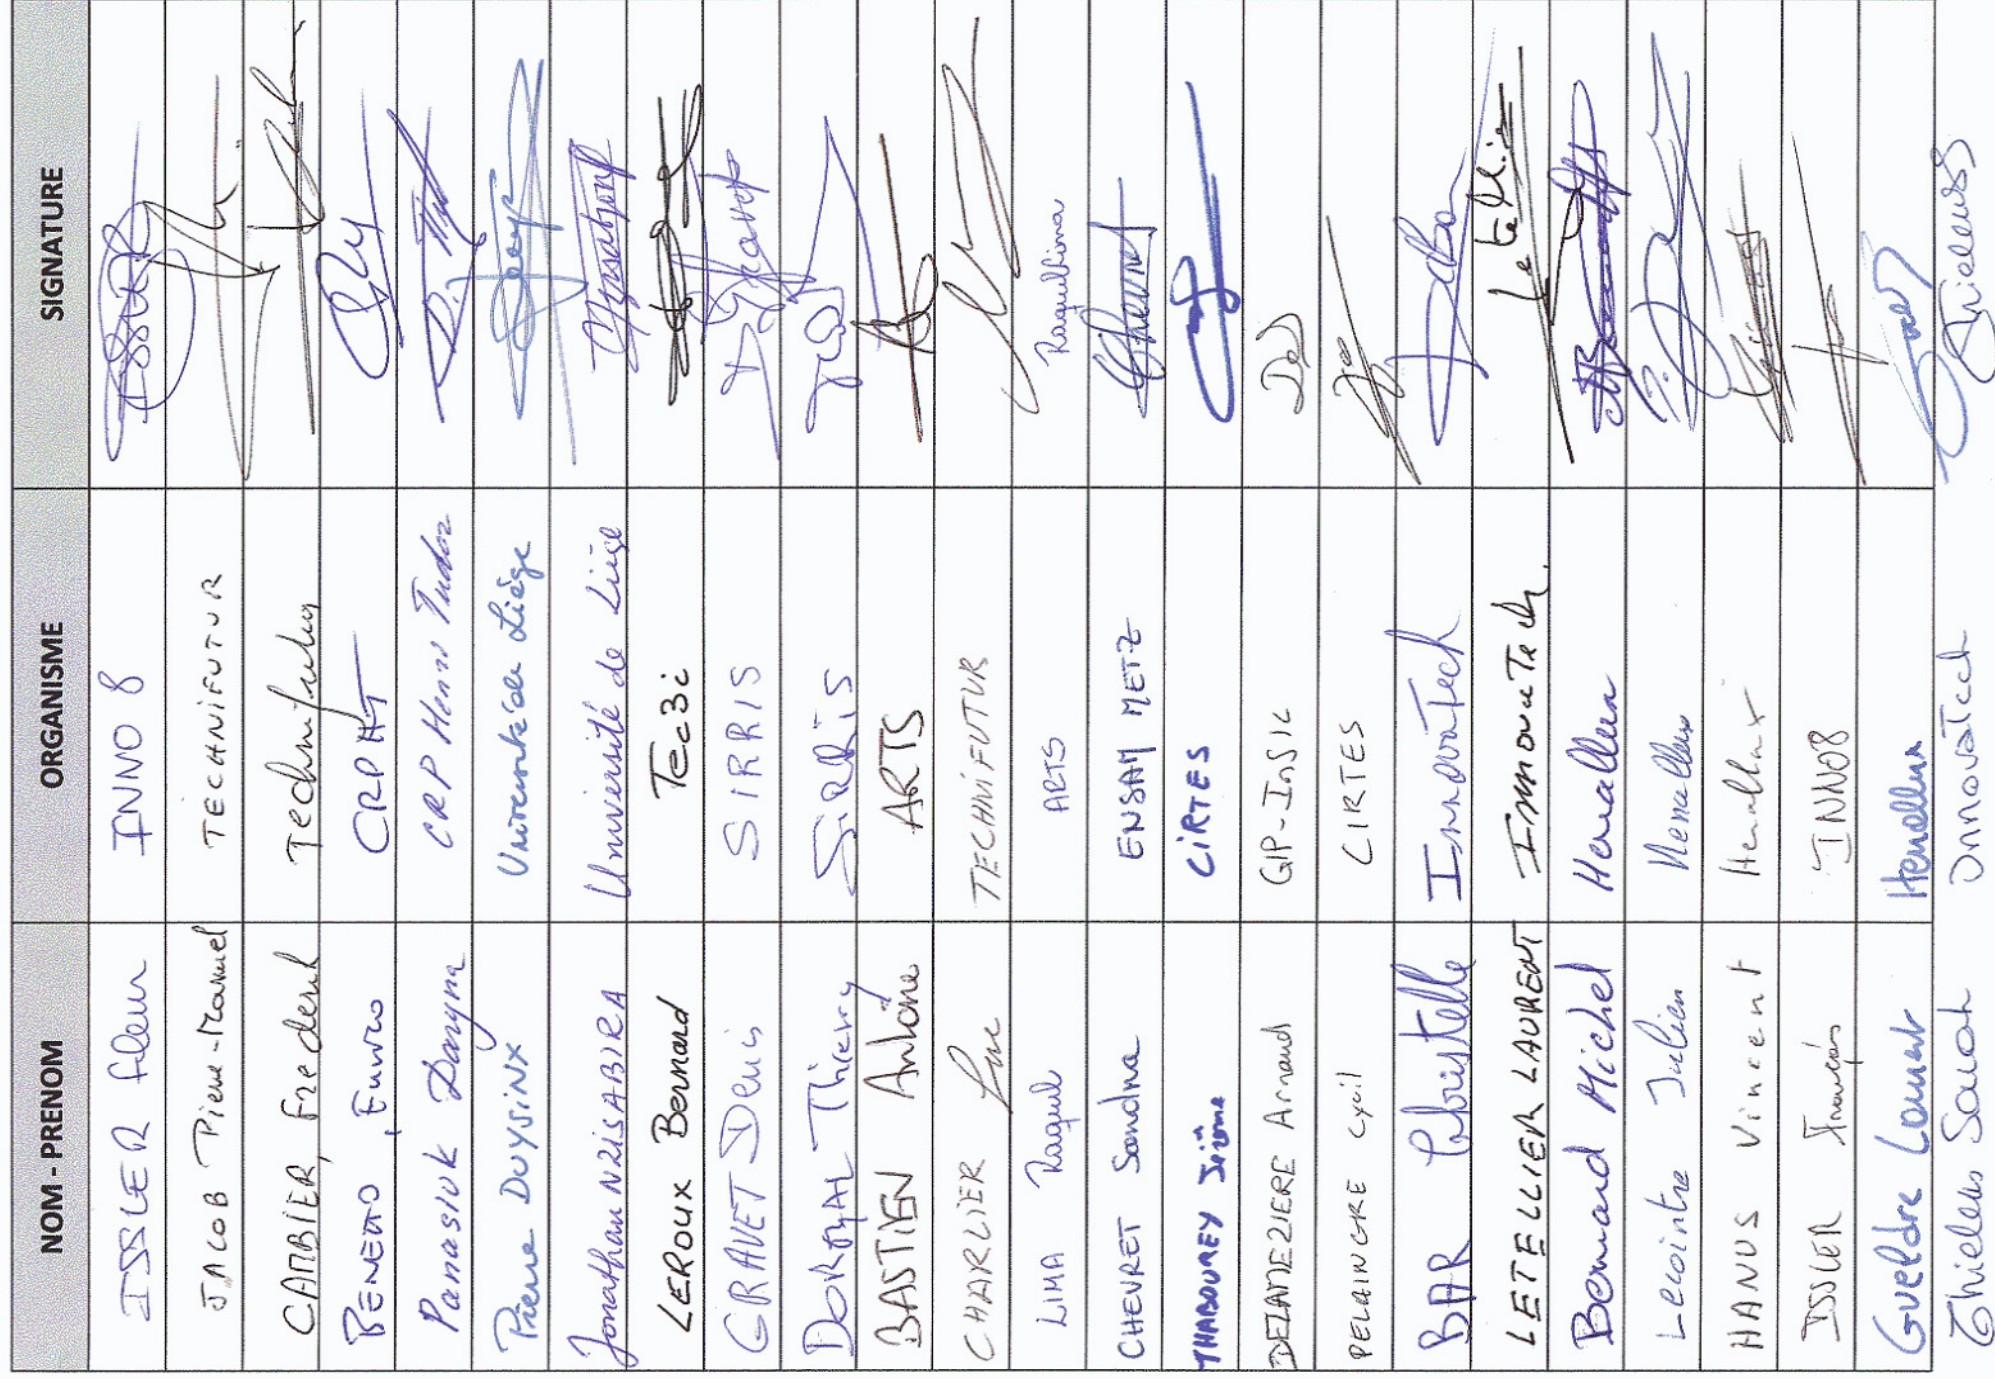 NOM - PRENOM ORGANISME SIGNATURE
ISSLER INNO 8
JACOB Pierre-Manuel TECHNIFUTUR
CAMBIER, Frederick Technifutur
BENEDTO, Enrico CRPHT
Panasiuk Daryna CRP Henri Tudor
Pierre DUYSINX Université de Liège
Jonathan NZISABIRA Université de Liège
LEROUX Bernard Tec3i
GRAVET Denis SIRRIS
DORMAL Thierry SiRRiS
BASTIEN Antoine ARTS
CHARLIER Luc TECHNIFUTUR
LIMA Raquel ARTS RaquelLima
CHEVRET Sandra ENSAM METZ Chevret
THABOUREY Jérôme CiRTES
DELAMEZIERE Arnaud GIP-InSIC
PELAINGRE Cyril CIRTES
BAR Christelle InnovaTech
LETELLIER LAURENT InnovaTech Le tellier
Bernard Michel Henallux
Lecointre Julien Henallux
HANUS Vincent Henallux
ISSLER François INNO8
GUELDRE Laurent Henallux
Thielens Sarah InnovaTech Thielens